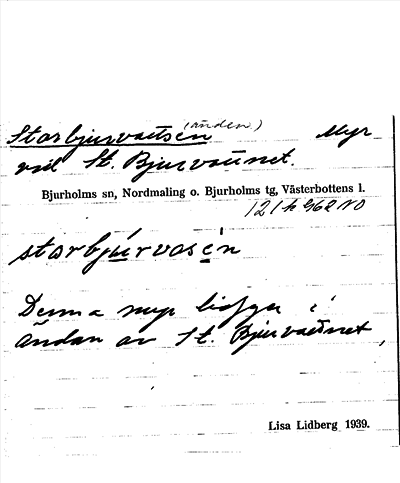 Storbjurvattsén (änden) Myr
vid St. Bjurvattnet.
Bjurholms sn, Nordmaling o. Bjurholms tg, Västerbottens l.
storbjúrvasén
Denna myr ligger i
ändan av St. Bjurvattnet,
Lisa Lidberg 1939.